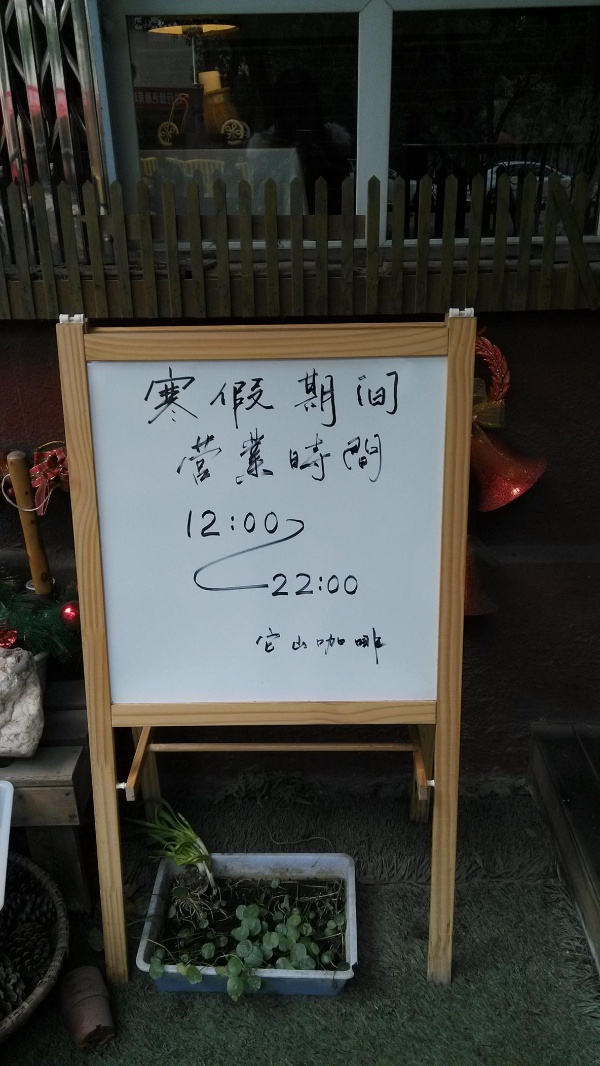 寒假期间
营業時間
12:00
22:00
它山咖啡